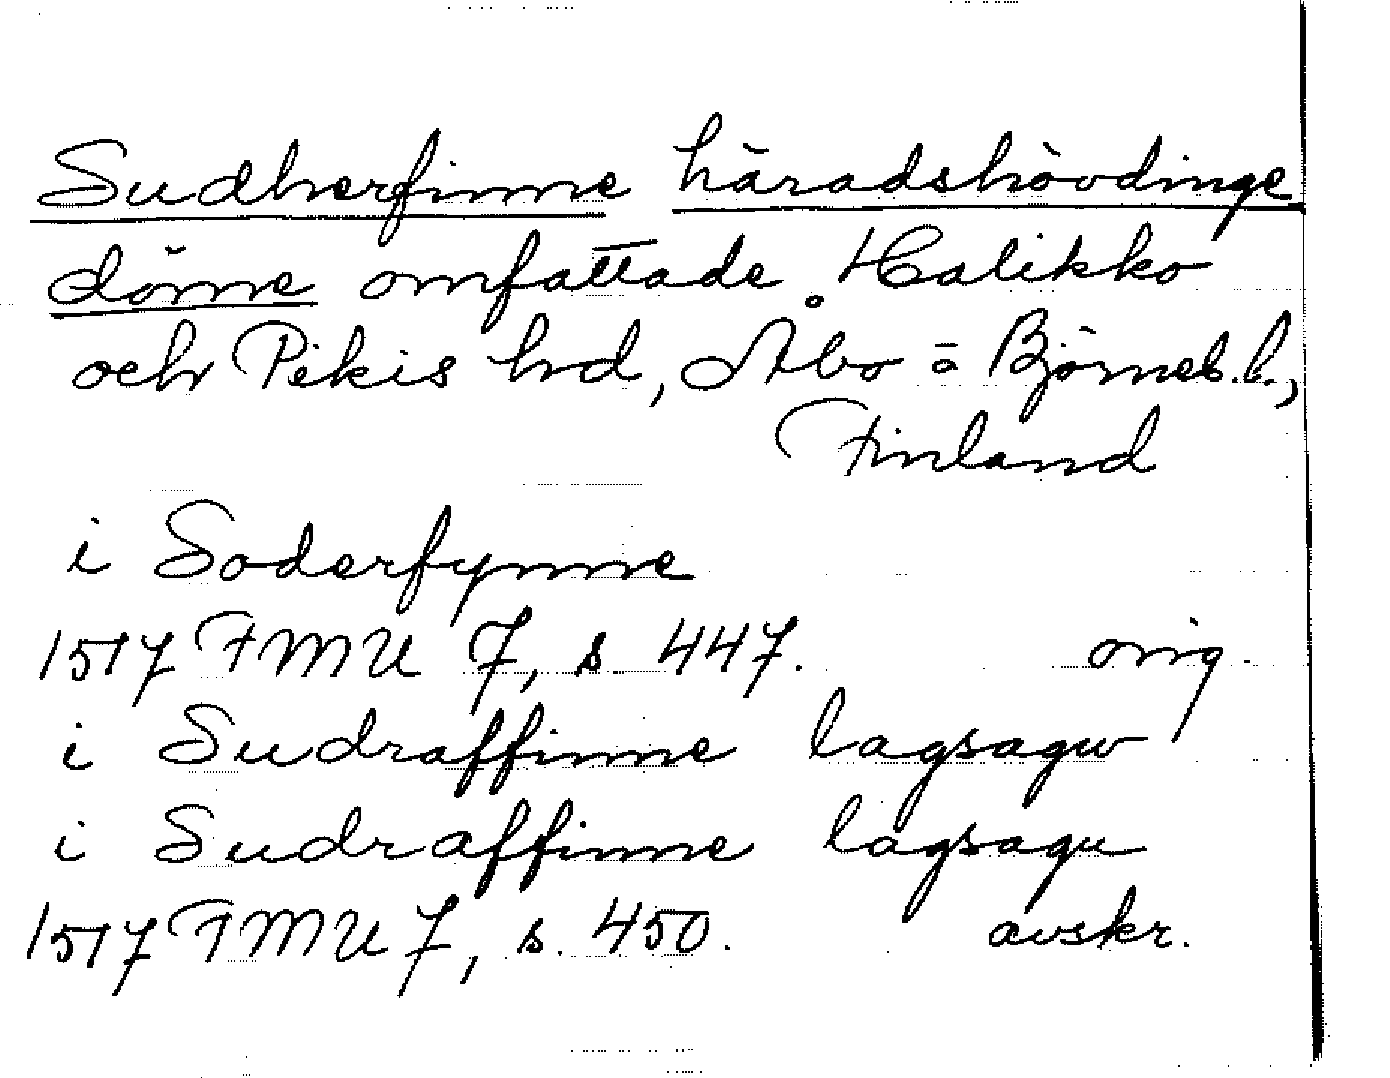 Sudherfinne häradshövdinge
döme omfattade Halikko
och Pikis hrd, Åbo o Björneb. l.,
Finland
i Soderfynne
1517 FMU 7, s 447. orig.
i Sudraffinne lagsagw
i Sudraffinne lagsagu
1517 FMU 7, s. 450. avskr.